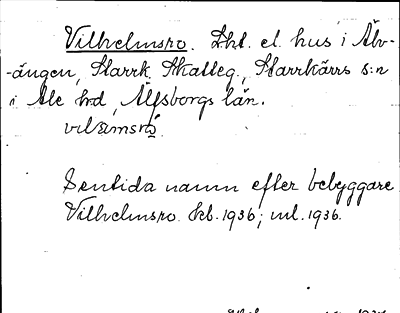 Vilhelmsro. Lht. el. hus i Älv-
-ängen, Starrk. Skatteg., Starrkärrs s:n
i Ale hd, Älfsborgs län.
Sentida namn efter bebyggare
Vilhelmsro. kb. 1936; ml. 1936.